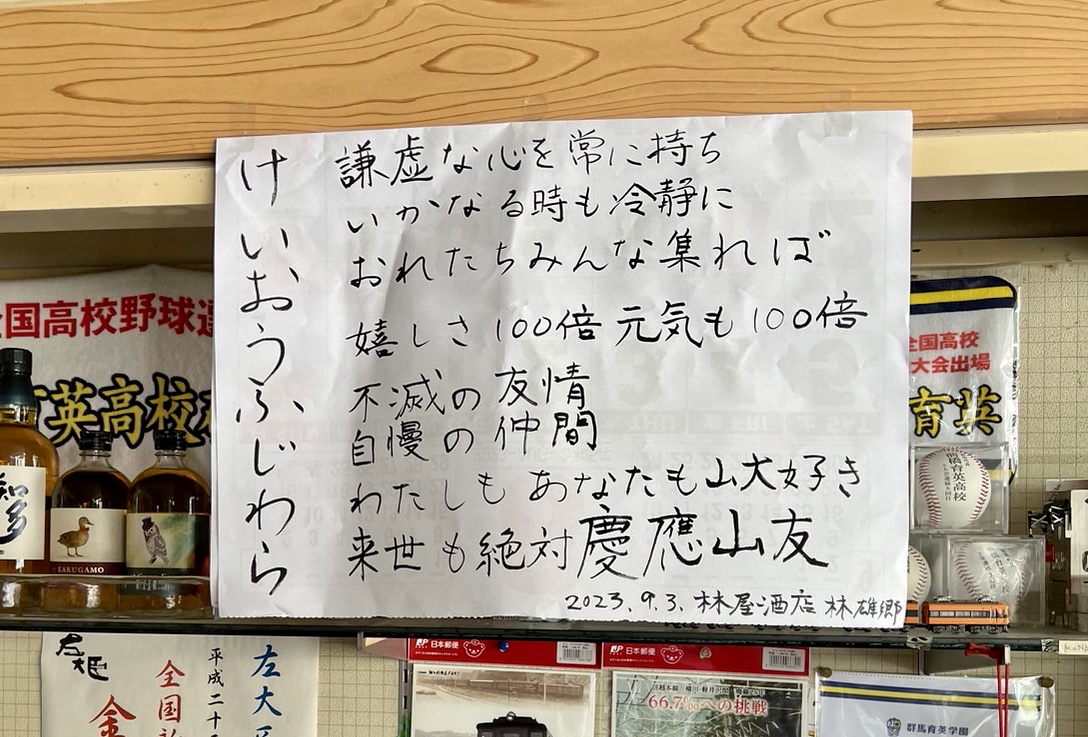 けいおうふじわら
謙虚な心を常に持ち
いかなる時も冷静に
おれたちみんな集れば
嬉しさ100倍 元気も100倍
不滅の友情
自慢の仲間
わたしもあなたも山大好き
来世も絶対慶應山友
2023.9.3. 林屋酒店 林雄郷
全国高校野球
育英高校
全国高校
大会出場
育英
前橋育英高校
知多
KARUGAMO
左大臣
平成二十
全国
金
日本郵便
日本郵便
66.7‰への挑戦
群馬育英学園